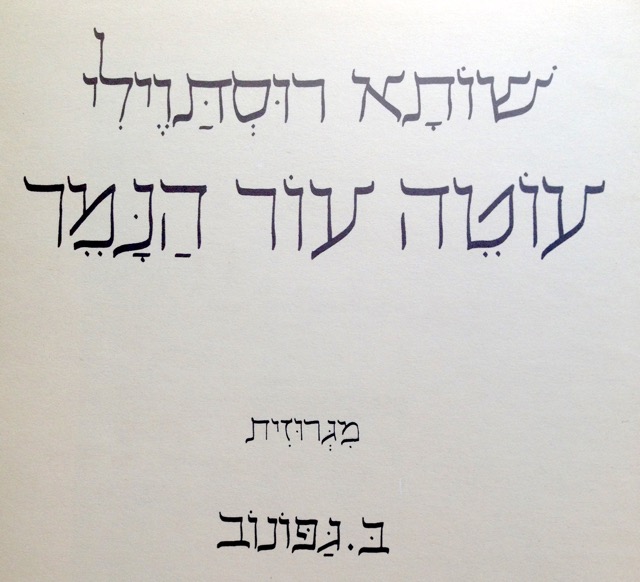 שׁוֹתָא רוּסְתַּוֶילִי
עוֹטֵה עוֹר הַנָּמֵר
מִגְּרוּזִית
בּ. גַּפּוֹנוֹב